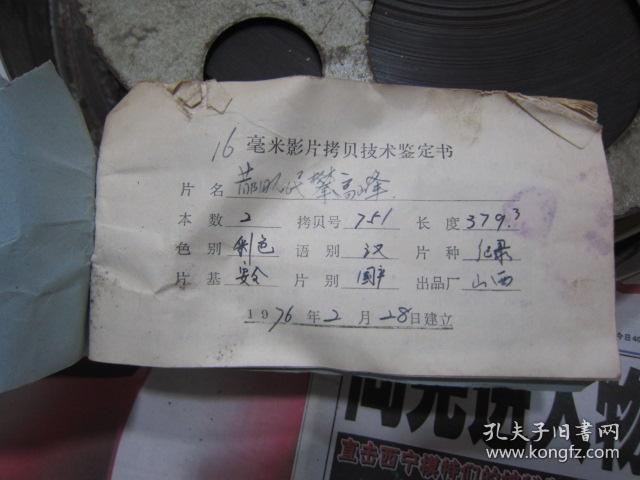 16毫米影片拷贝技术鉴定书
片名 昔阳人民攀高峰
本数 2 拷贝号 751 长度 379.3
色别 彩色 语别 汉 片种 纪录
片基 安全 片别 国产 出品厂 山西
1976年2月28日建立
今日40
直击西宁
孔夫子旧书网
www.kongfz.com